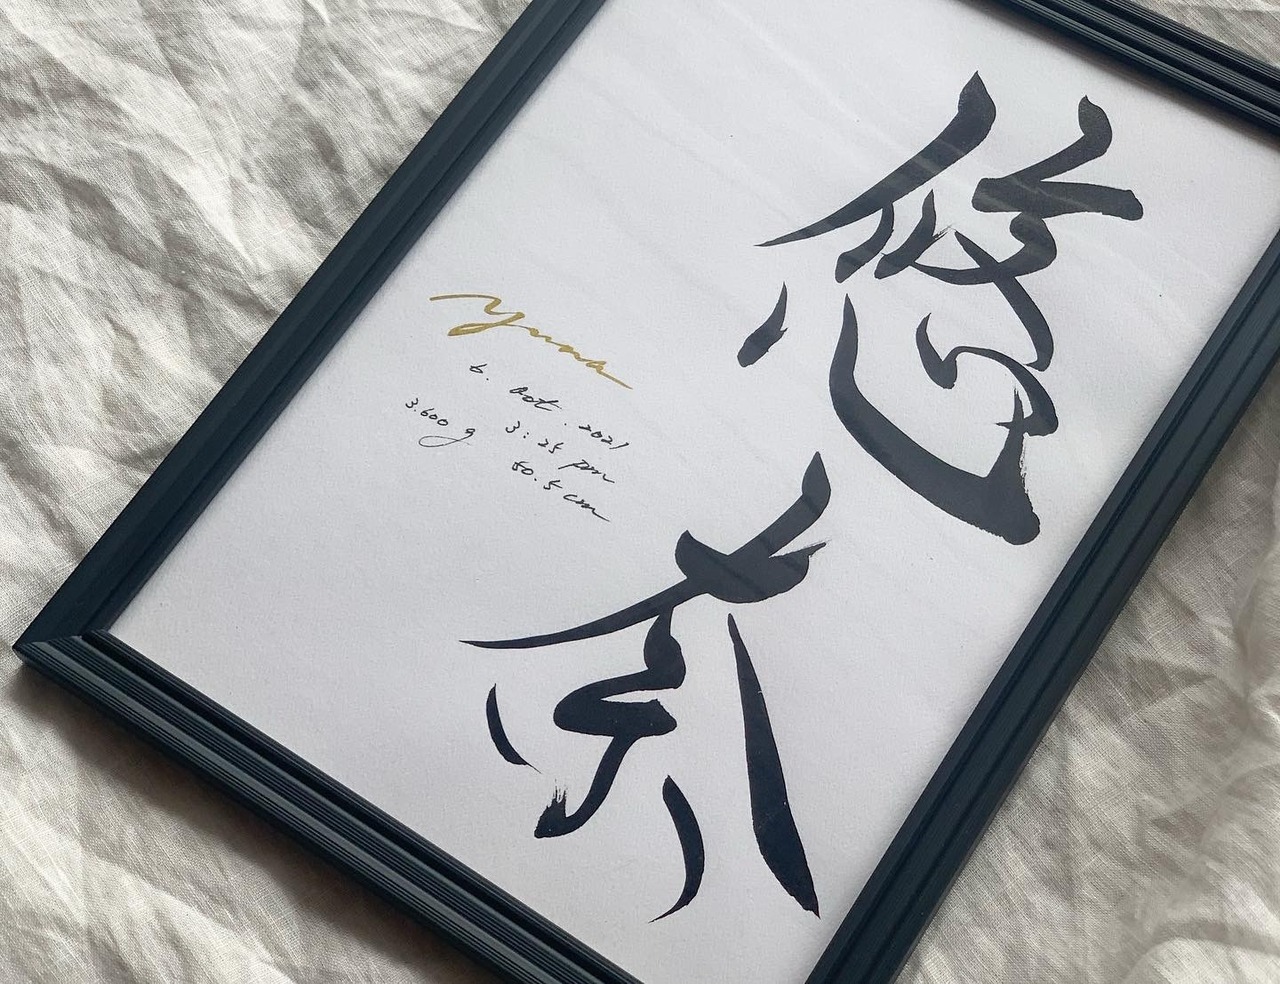 悠奈
yuna
b. Oct. 2021
3:25 pm
3.600 g 50.5 cm